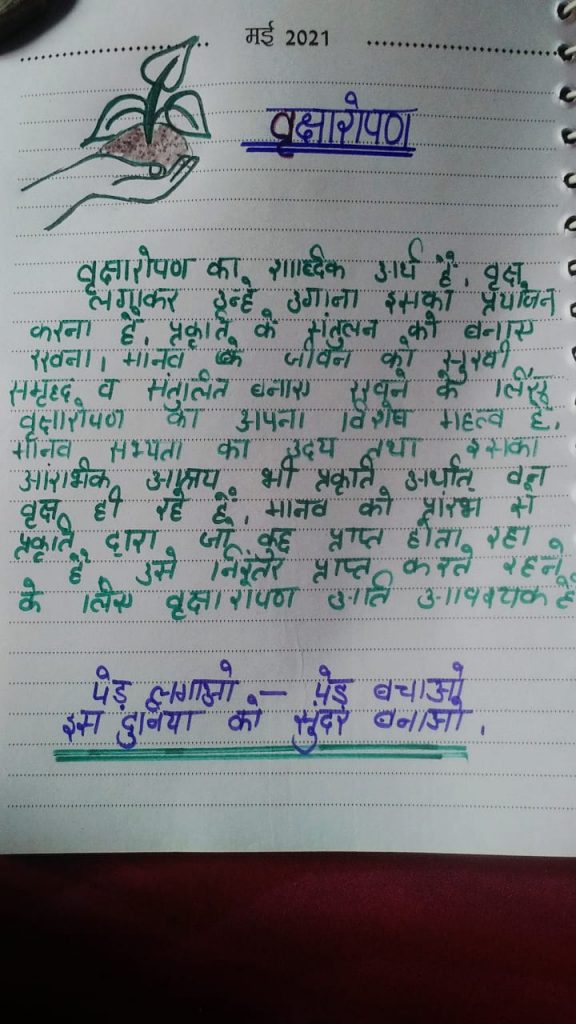 मई 2021
वृक्षारोपण
वृक्षारोपण का शाब्दिक अर्थ है, वृक्ष
लगाकर उन्हे उगाना इसका प्रयोजन
करना है, प्रकृति के संतुलन को बनाए
रखना। मानव के जीवन को सुखी
समृद्ध व संतुलित बनाए रखने के लिए
वृक्षारोपण का अपना विशेष महत्व है,
मानव सभ्यता का उदय तथा इसका
आरंभिक आश्रय भी प्रकृति अर्थात् वन
वृक्ष ही रहे हैं, मानव को प्रारंभ से
प्रकृति द्वारा जो कुछ प्राप्त होता रहा
है उसे निरंतर प्राप्त करते रहने
के लिए वृक्षारोपण अति आवश्यक है
पेड़ लगाओ – पेड़ बचाओ
इस दुनिया को सुंदर बनाओ,